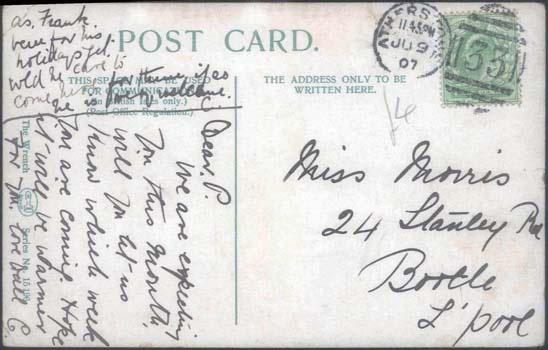 as, Frank
has for his
holidays yet.
wld he care to
come here for them, if so
he is welcome.
POST CARD.
THIS SPACE MAY BE USED
FOR COMMUNICATION
(British Isles only.)
(Post Office Regulation.)
THE ADDRESS ONLY TO BE
WRITTEN HERE.
ATHERS
11.45PM
JU 9
07
133
Dear. P.
We are expecting
You this Month.
Will You let us
Know which week
You are coming. Hope
it will be warmer
for You. Love to all
Miss Morris
24 Stanley Rd
Bootle
L'pool
The Wrench
Series No.